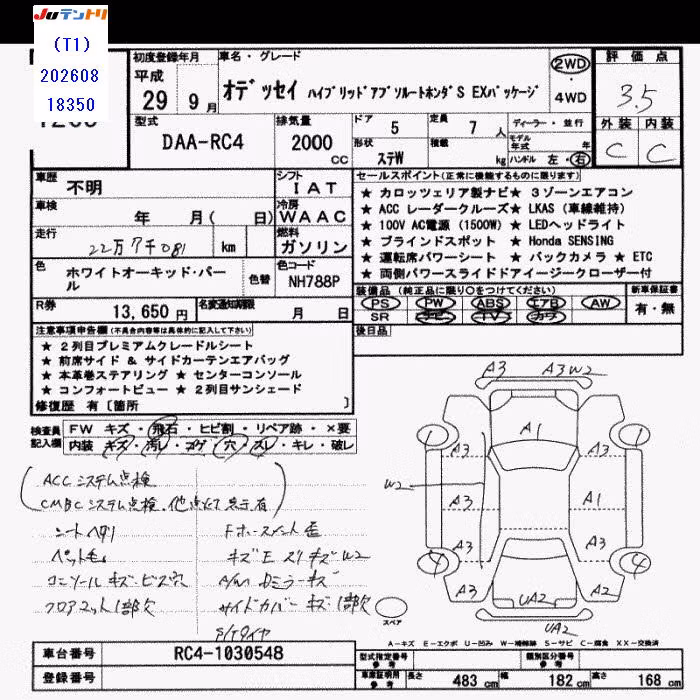 JUテントリ
(T1)
202608
18350
初度登録年月
平成
29 9月
車名・グレード
オデッセイ ハイブリッドアブソルートホンダS EXパッケージ
2WD
・
4WD
評価点
3.5
外装 内装
C C
型式
DAA-RC4
排気量
2000 cc
ドア 5
形状 ステW
定員 7 人
積載 kg
ディーラー・並行
モデル年式 年
ハンドル 左・右
車歴
不明
シフト
IAT
車検
年 月( 日)
冷房
WAAC
走行
22万7千081 km
燃料
ガソリン
色
ホワイトオーキッド・パール
色替
色コード
NH788P
R券
13,650 円
名変通知期限
月 日
セールスポイント(正常に機能するものに限ります)
★ カロッツェリア製ナビ★ 3ゾーンエアコン
★ ACC レーダークルーズ★ LKAS (車線維持)
★ 100V AC電源 (1500W) ★ LEDヘッドライト
★ ブラインドスポット ★ Honda SENSING
★ 運転席パワーシート ★ バックカメラ ★ ETC
★ 両側パワースライドドアイージークローザー付
装備品 (純正品に限り○をつけてください)
PS PW ABS エアB AW
SR ナビ TV カワ
新車保証書
有・無
後日品
注意事項申告欄(不具合内容等は具体的に記入して下さい)
★ 2列目プレミアムクレードルシート
★ 前席サイド & サイドカーテンエアバッグ
★ 本革巻ステアリング ★ センターコンソール
★ コンフォートビュー ★ 2列目サンシェード
修復歴 有〔箇所 〕
検査員記入欄
FW キズ・飛石・ヒビ割・リペア跡・×要
内装 キズ・汚レ・コゲ・穴・スレ・キレ・破レ
ACCシステム点検
CMBCシステム点検、他点灯表示有
シートヘタリ
ペット毛
コンソールキズ・ビズ穴
フロアマット1部欠
キズE スリキズW2
A/W Dミラーキズ
サイドカバーキズ1部欠
S/Tタイヤ
A3 A3W2
A1
1 1
A3 A3
W2
A3 A1
A3 A3
4 4
A3 UA2 A2
UA2
スペア
A-キズ E-エクボ U-凹み W-補修跡 S-サビ C-腐食 XX-交換済
車台番号
RC4-1030548
登録番号
型式指定番号 参考
類別区分番号 参考
車庫証明用 参考
長さ 483 cm
幅 182 cm
高さ 168 cm